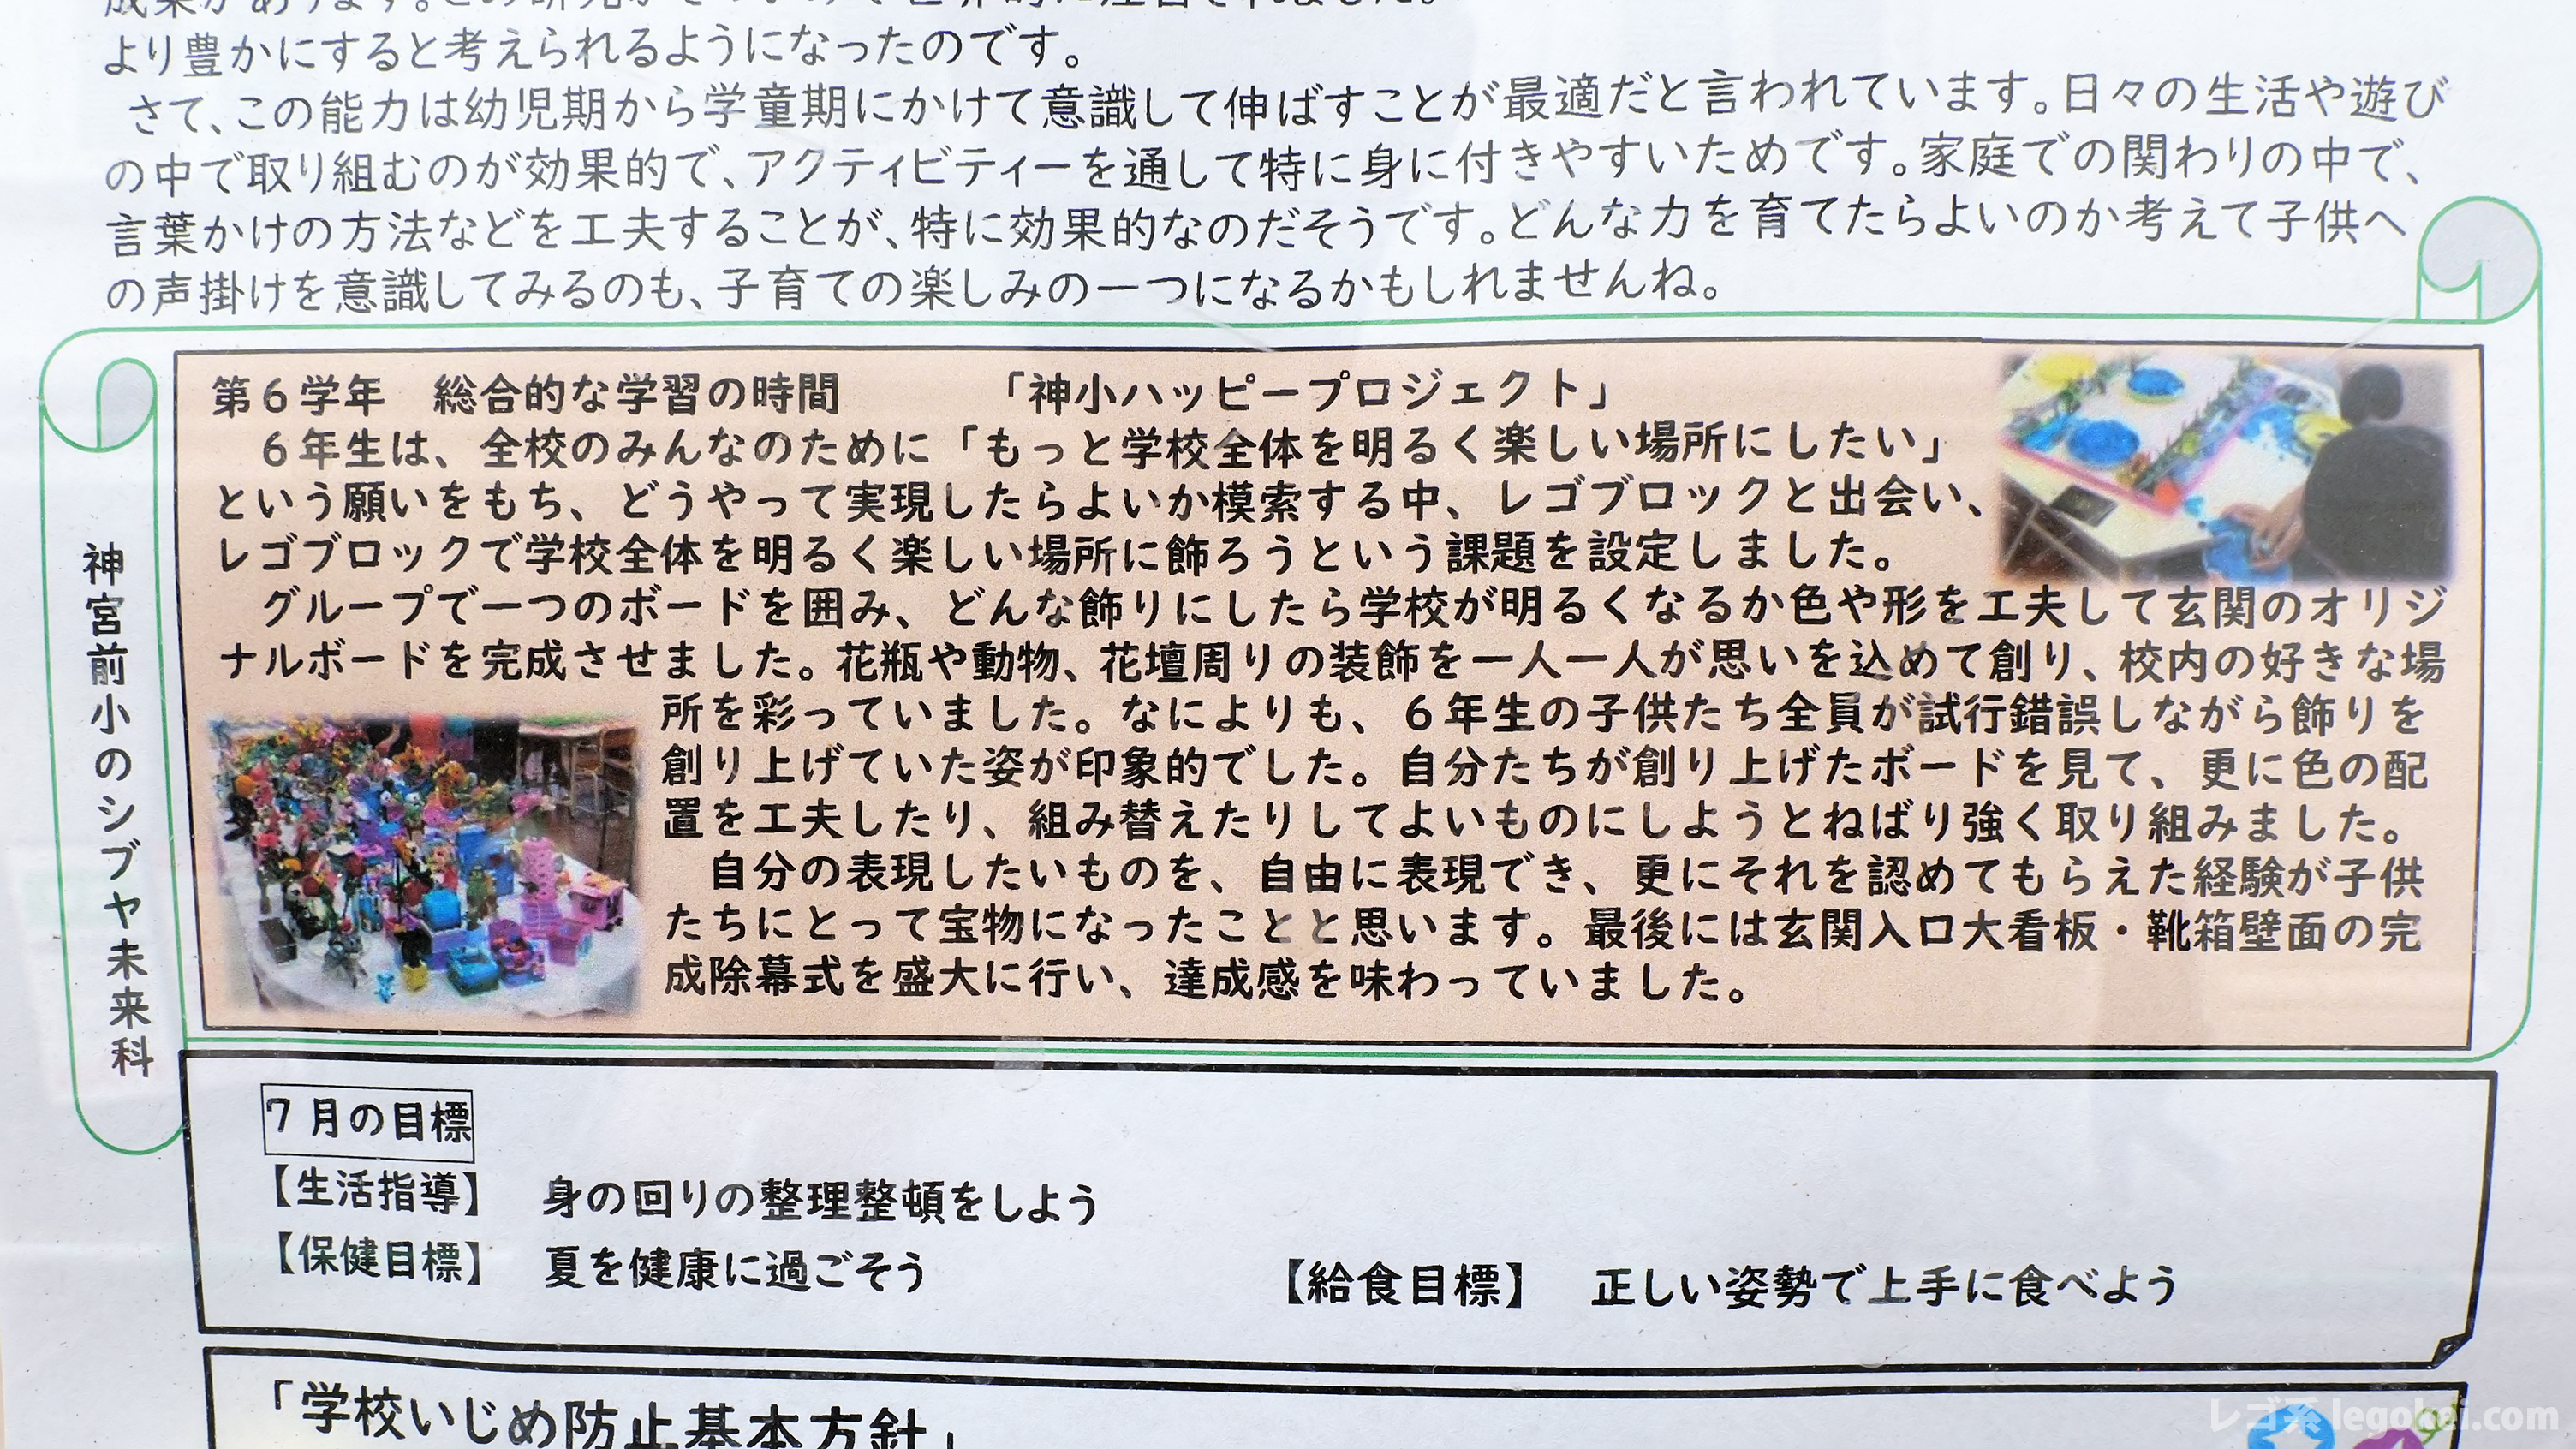 より豊かにすると考えられるようになったのです。
さて、この能力は幼児期から学童期にかけて意識して伸ばすことが最適だと言われています。日々の生活や遊び
の中で取り組むのが効果的で、アクティビティーを通して特に身に付きやすいためです。家庭での関わりの中で、
言葉かけの方法などを工夫することが、特に効果的なのだそうです。どんな力を育てたらよいのか考えて子供へ
の声掛けを意識してみるのも、子育ての楽しみの一つになるかもしれませんね。
神宮前小のシブヤ未来科
第6学年　総合的な学習の時間　「神小ハッピープロジェクト」
6年生は、全校のみんなのために「もっと学校全体を明るく楽しい場所にしたい」
という願いをもち、どうやって実現したらよいか模索する中、レゴブロックと出会い、
レゴブロックで学校全体を明るく楽しい場所に飾ろうという課題を設定しました。
グループで一つのボードを囲み、どんな飾りにしたら学校が明るくなるか色や形を工夫して玄関のオリジ
ナルボードを完成させました。花瓶や動物、花壇周りの装飾を一人一人が思いを込めて創り、校内の好きな場
所を彩っていました。なによりも、6年生の子供たち全員が試行錯誤しながら飾りを
創り上げていた姿が印象的でした。自分たちが創り上げたボードを見て、更に色の配
置を工夫したり、組み替えたりしてよいものにしようとねばり強く取り組みました。
自分の表現したいものを、自由に表現でき、更にそれを認めてもらえた経験が子供
たちにとって宝物になったことと思います。最後には玄関入口大看板・靴箱壁面の完
成除幕式を盛大に行い、達成感を味わっていました。
7月の目標
【生活指導】　身の回りの整理整頓をしよう
【保健目標】　夏を健康に過ごそう　【給食目標】　正しい姿勢で上手に食べよう
「学校いじめ防止基本方針」
レゴ系 legokei.com